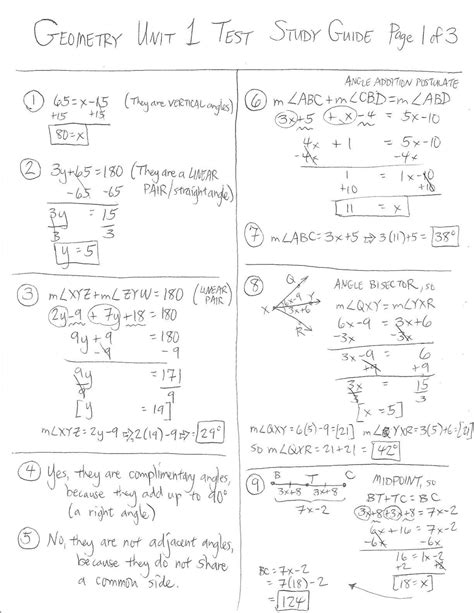 GEOMETRY UNIT 1 TEST STUDY GUIDE Page 1 of 3
① 65 = x-15 (They are VERTICAL angles)
+15 +15
80 = x
② 3y+65 = 180 (They are a LINEAR
-65 -65 PAIR/straight angle)
3y = 15
3 3
y = 5
③ m∠XYZ + m∠ZYW = 180 (LINEAR
PAIR)
2y-9 + 7y+18 = 180
9y + 9 = 180
-9 -9
9y = 171
9 9
[y = 19]
m∠XYZ = 2y-9 ⇒ 2(19)-9 = 29°
④ Yes, they are complimentary angles,
because they add up to 90°
(a right angle)
⑤ No, they are not adjacent angles,
because they do not share
a common side.
ANGLE ADDITION POSTULATE
⑥ m∠ABC + m∠CBD = m∠ABD
3x+5 + x-4 = 5x-10
4x + 1 = 5x-10
-4x -4x
1 = 1x-10
+10 +10
11 = x
⑦ m∠ABC = 3x+5 ⇒ 3(11)+5 = 38°
⑧ ANGLE BISECTOR, so
Q
X 6x-9 Y
3x+6
R
m∠QXY = m∠YXR
6x-9 = 3x+6
-3x -3x
3x-9 = 6
+9 +9
3x = 15
3 3
[x = 5]
m∠QXY = 6(5)-9 = [21] m∠YXR = 3(5)+6 = [21]
so m∠QXR = 21+21 = 42°
⑨ B T C MIDPOINT, so
3x+8 3x+8
7x-2
BT + TC = BC
3x+8 + 3x+8 = 7x-2
6x+16 = 7x-2
-6x -6x
16 = 1x-2
+2 +2
[18 = x]
BC = 7x-2
= 7(18)-2
= 124